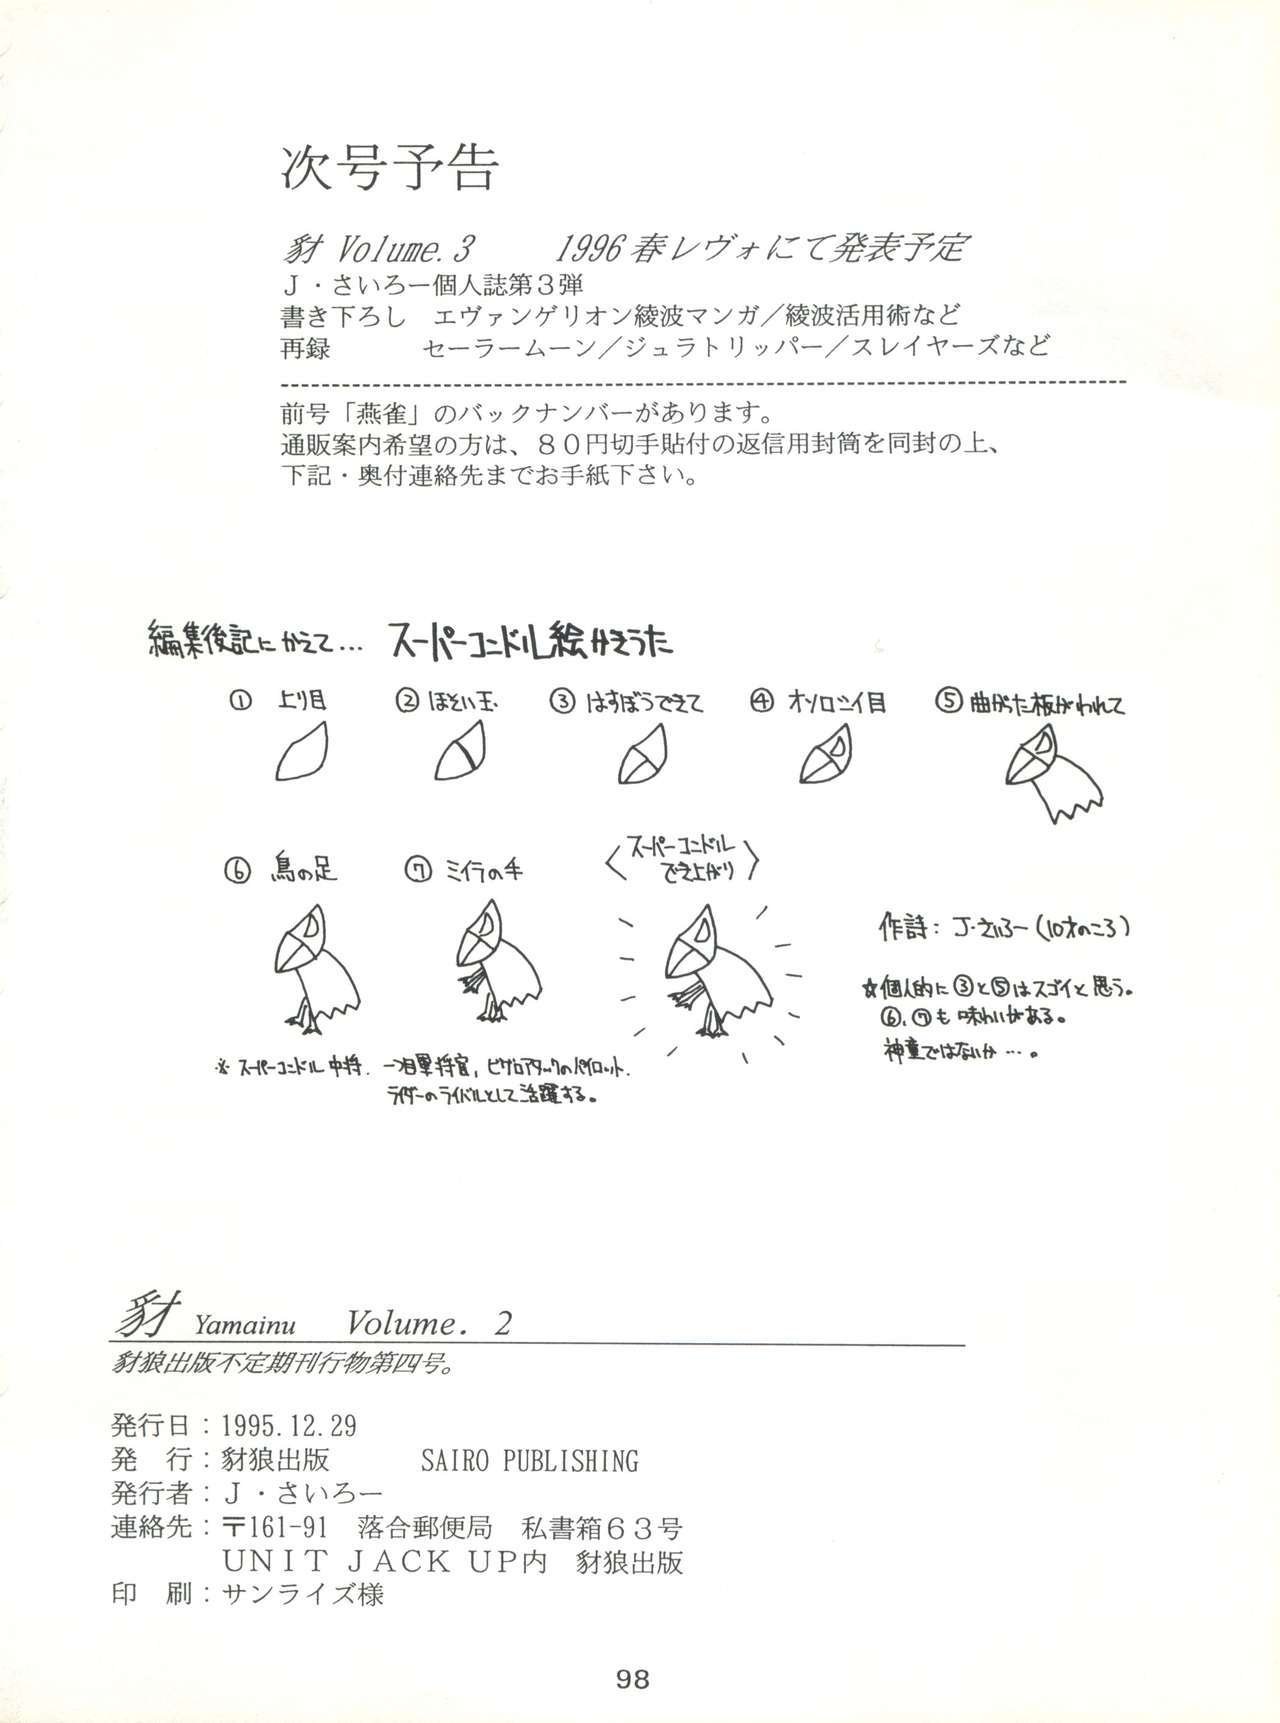 次号予告
豺 Volume.3 1996春レヴォにて発表予定
J・さいろー個人誌第3弾
書き下ろし エヴァンゲリオン綾波マンガ／綾波活用術など
再録 セーラームーン／ジュラトリッパー／スレイヤーズなど
前号「燕雀」のバックナンバーがあります。
通販案内希望の方は、８０円切手貼付の返信用封筒を同封の上、
下記・奥付連絡先までお手紙下さい。
編集後記にかえて… スーパーコンドル絵かきうた
① 上り目
② ほそい玉
③ はすぼうできて
④ オソロシイ目
⑤ 曲がった板がわれて
⑥ 鳥の足
⑦ ミイラの手
スーパーコンドル
でき上がり
作詩：J・さいろー（10才のころ）
☆個人的に③と⑤はスゴイと思う。
⑥、⑦も味わいがある。
神童ではないか…。
※スーパーコンドル中将. 一つ目軍将官,
ライダーのライバルとして活躍する。
豺 Yamainu Volume. 2
豺狼出版不定期刊行物第四号。
発行日：1995.12.29
発　行：豺狼出版 SAIRO PUBLISHING
発行者：Ｊ・さいろー
連絡先：〒161-91 落合郵便局 私書箱６３号
ＵＮＩＴ ＪＡＣＫ ＵＰ内 豺狼出版
印　刷：サンライズ様
98